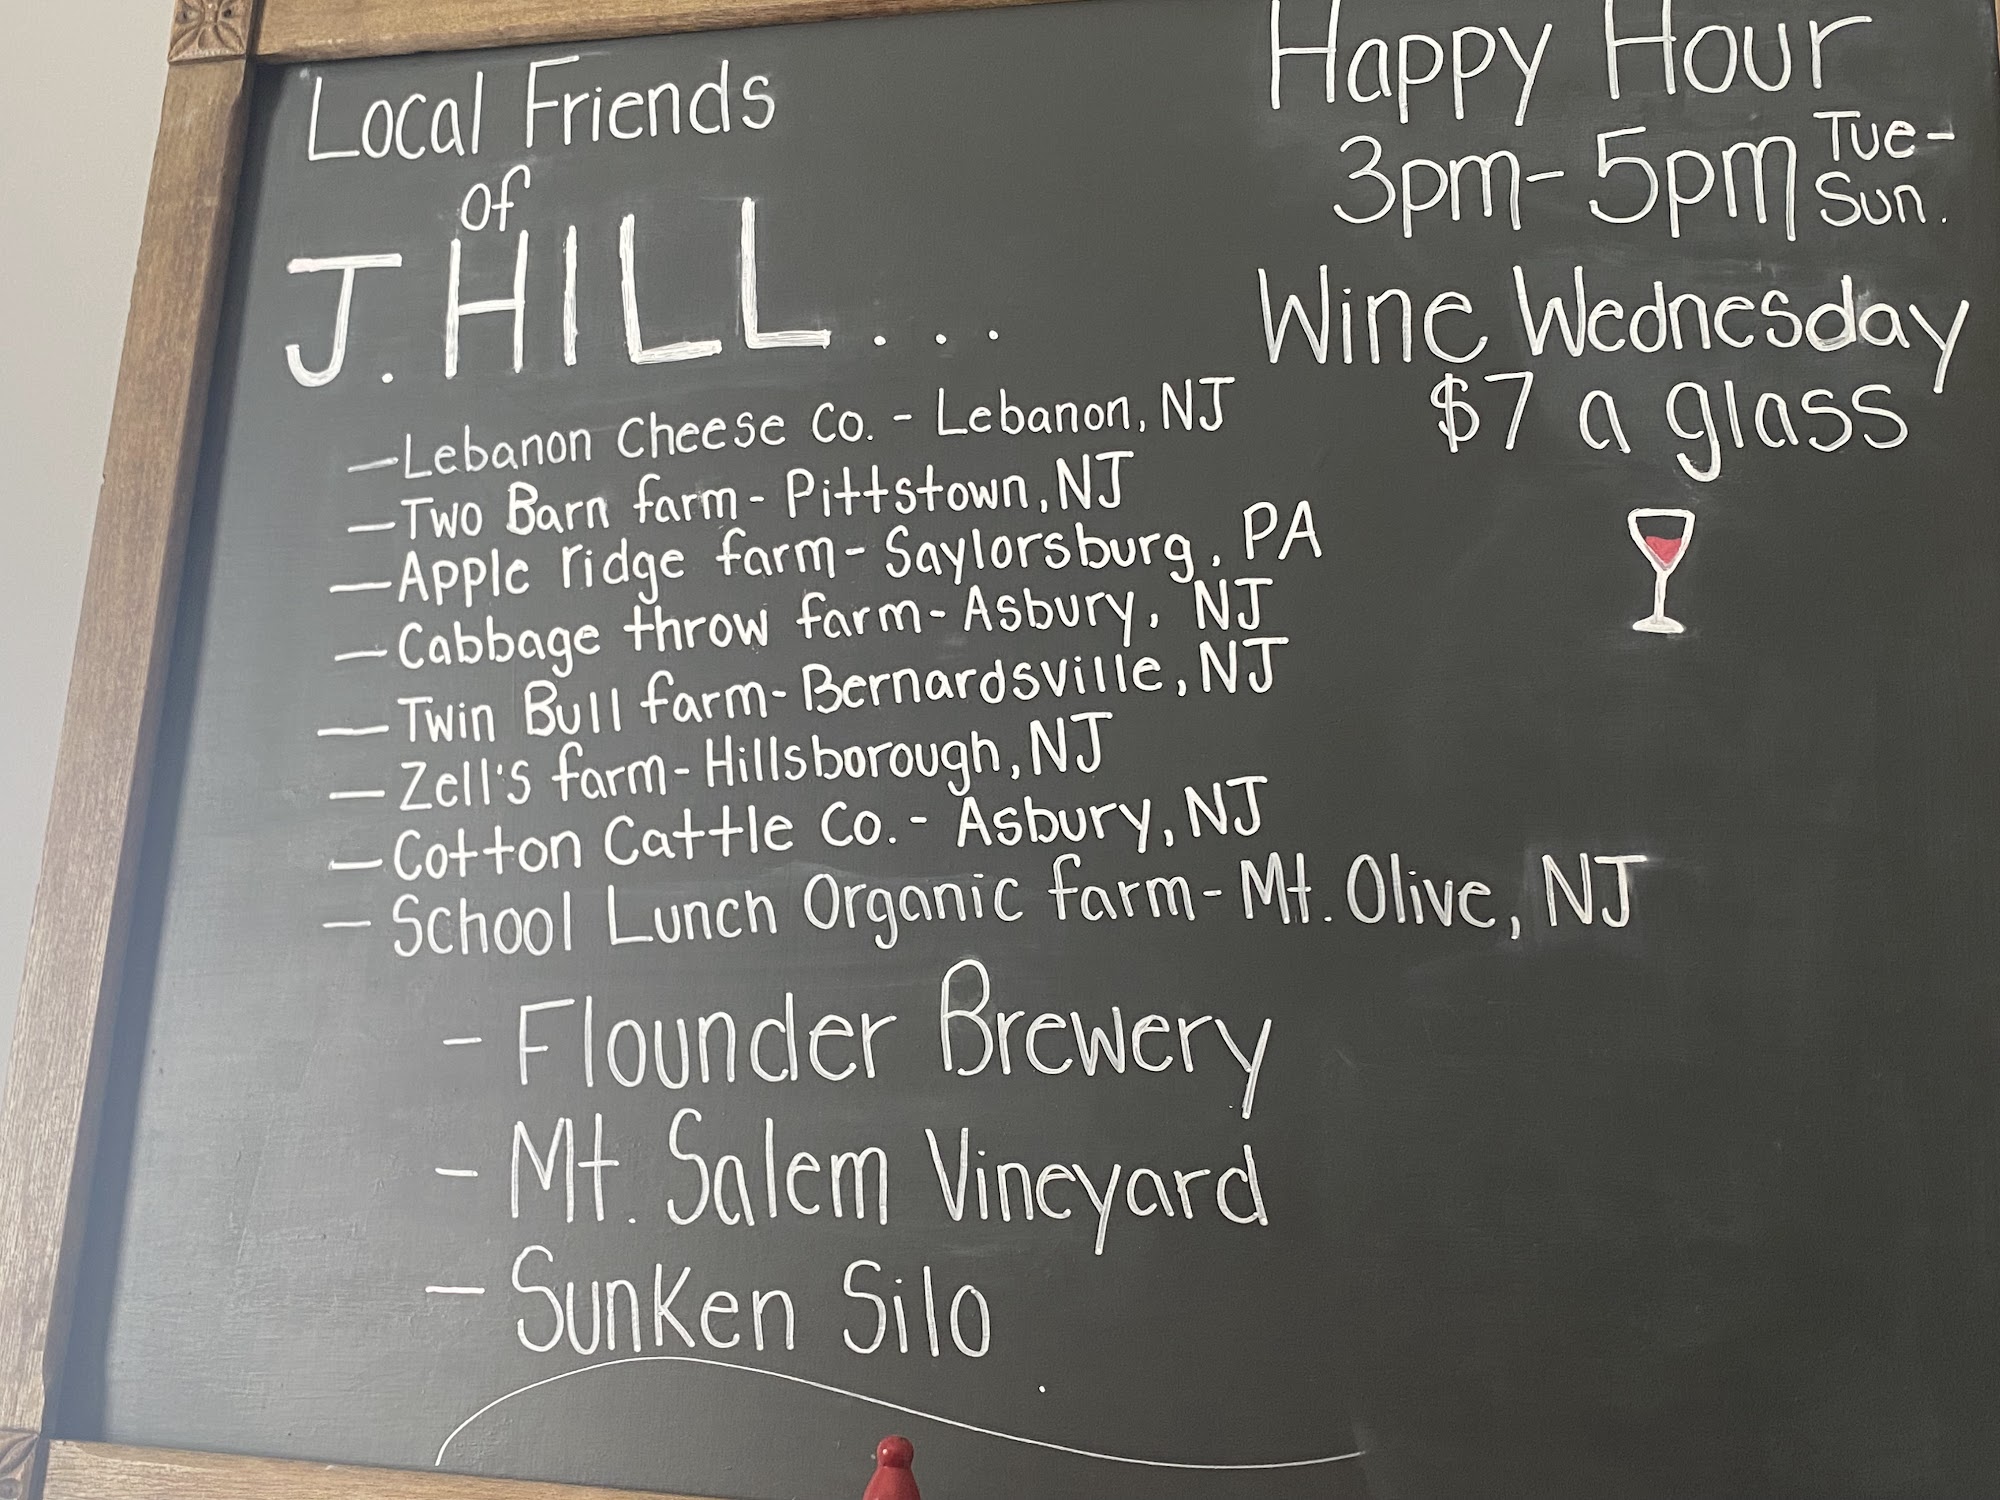 Local Friends
of
J. HILL...
— Lebanon Cheese Co. - Lebanon, NJ
— Two Barn farm - Pittstown, NJ
— Apple ridge farm - Saylorsburg, PA
— Cabbage throw farm - Asbury, NJ
— Twin Bull farm - Bernardsville, NJ
— Zell's farm - Hillsborough, NJ
— Cotton Cattle Co. - Asbury, NJ
— School Lunch Organic farm - Mt. Olive, NJ
- Flounder Brewery
- Mt. Salem Vineyard
- Sunken Silo
Happy Hour
3pm - 5pm Tue-
Sun.
Wine Wednesday
$7 a glass